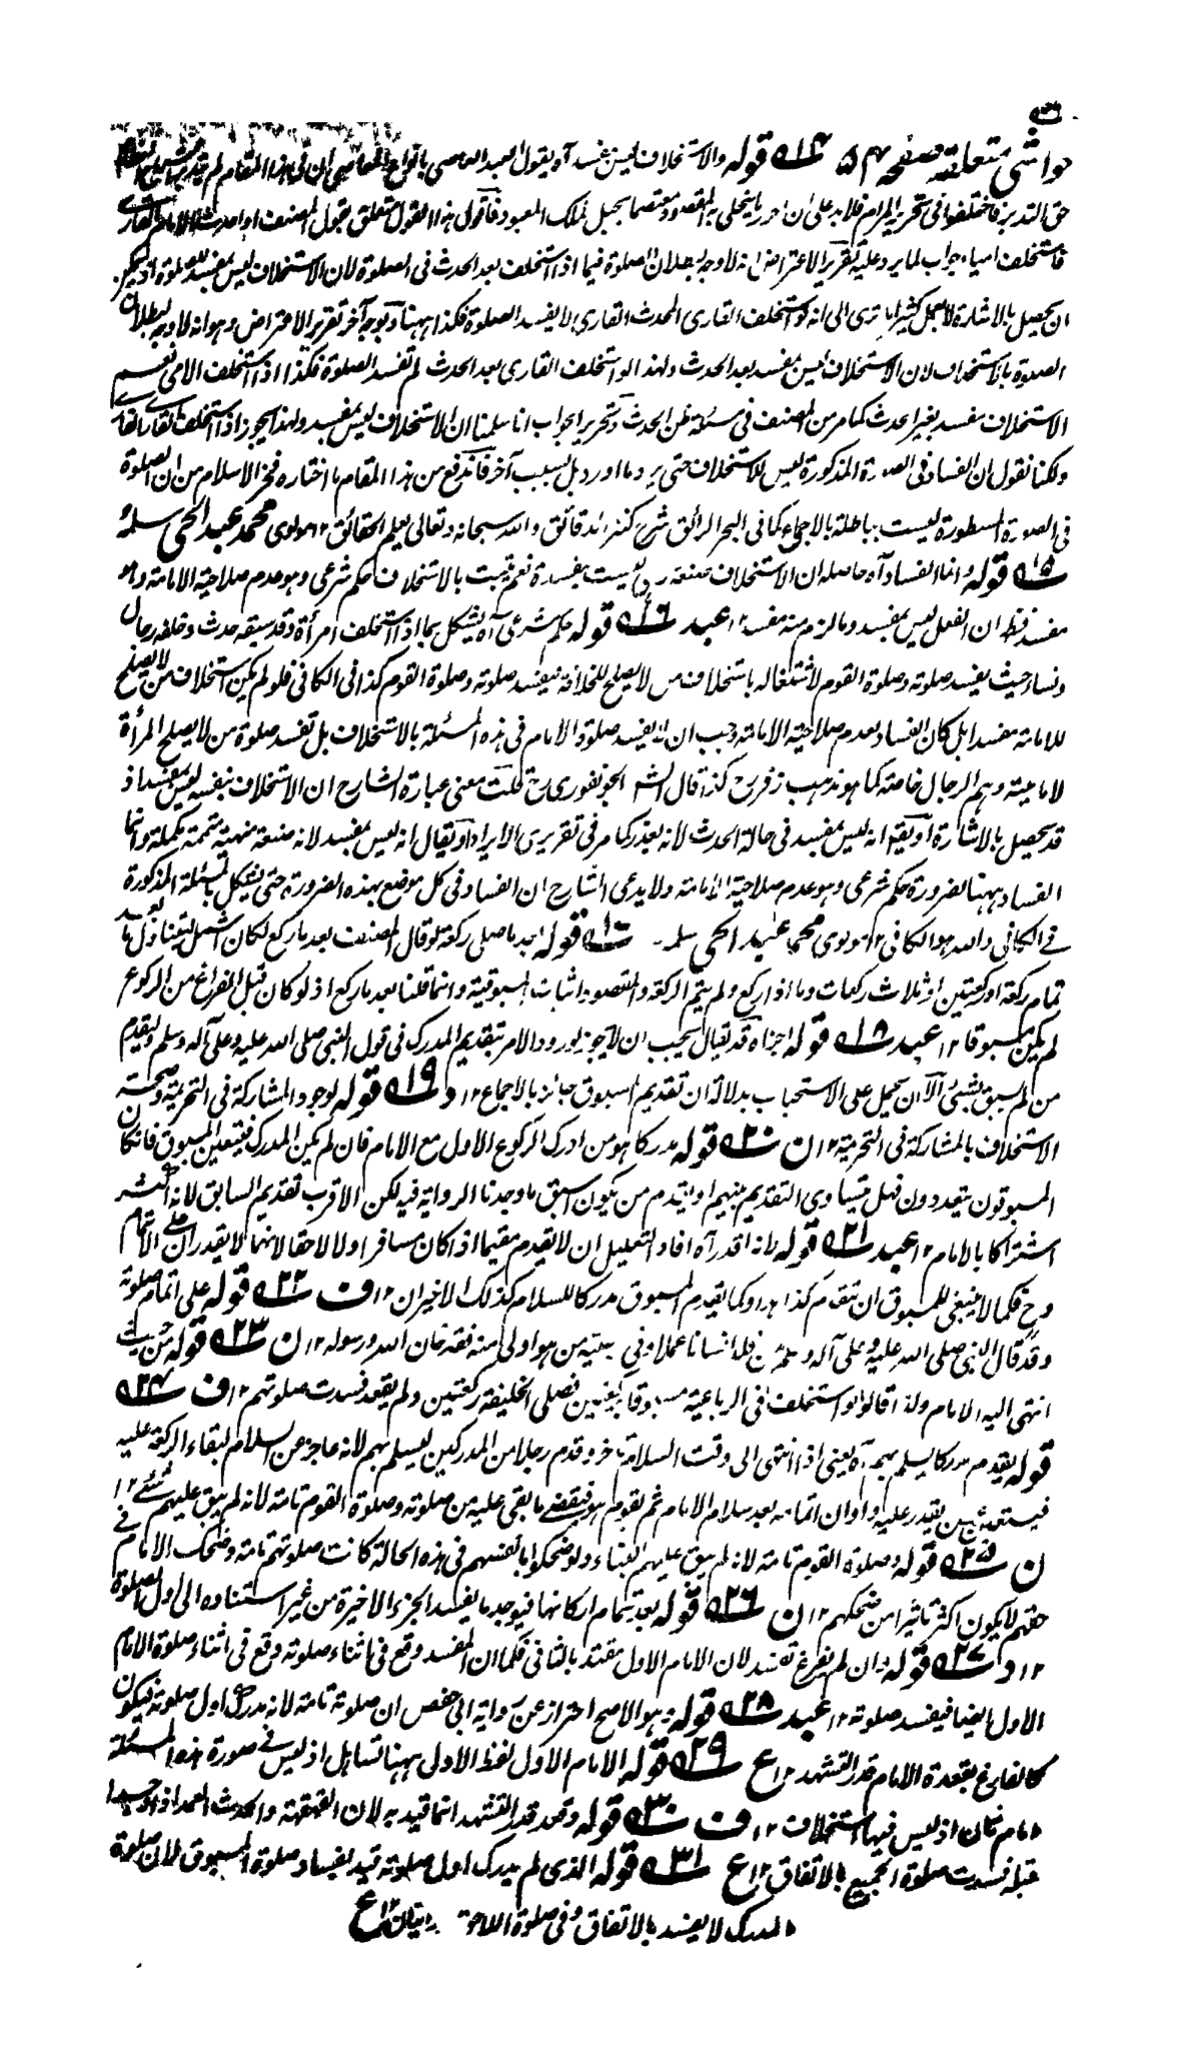 حواشی متعلقہ صفحہ ۵۴ ۱۴ قوله والاستخلاف ليس بمفسد آه يقول العبد العاصی بانواع المعاصی ان فی هذا المقام لم
حق التدبر فاختلفوا فی تحریر المرام فلا بد علی ان احرر ما ینجلی به المقصود معتصما بحبل الملک المعبود فاقول هذا القول متعلق بقول المصنف او احدث الامام القاری
فاستخلف امیاء جواب لما یرد علیه تقریر الاعتراض انه لا وجه لبطلان الصلوة فیما اذا استخلف بعد الحدث فی الصلوة لان الاستخلاف لیس بمفسد للصلوة اذ یمکن
ان یحصل بالاشارة لا بعمل کثیر الا تری الی انه لو استخلف القاری المحدث القاری لا یفسد الصلوة فکذا ههنا وبوجه آخر تقریر الاعتراض وهو انه لا وجه لبطلان
الصلوة بالاستخلاف لان الاستخلاف لیس بمفسد بعد الحدث ولهذا لو استخلف القاری بعد الحدث لم تفسد الصلوة فکذا اذا استخلف الامی نعم
الاستخلاف مفسد بغیر الحدث کما مر من المصنف فی مسئلة ظن الحدث وتحریر الجواب انا سلمنا ان الاستخلاف لیس بمفسد ولهذا یجوز اذا استخلف القاری القاری
ولکنا نقول ان الفساد فی الصورة المذکورة لیس للاستخلاف حتی یرد ما اورد بل بسبب آخر فاندفع من هذا المقام ما اختاره فخر الاسلام من ان الصلوة
فی الصورة المسطورة لیست بباطلة بالاجماع کما فی البحر الرائق شرح کنز الدقائق والله سبحانه وتعالی یعلم الحقائق ۱۲ مولوی محمد عبد الحی سلمه
۱۵ قوله وانما الفساد آه حاصله ان الاستخلاف صنعه لیست بمفسدة نعم یثبت بالاستخلاف حکم شرعی وهو عدم صلاحیة الامامة وهو
مفسد فظهر ان الفعل لیس بمفسد وما لزم منه مفسد ۱۲ عبد ۱۶ قوله حکم شرعی آه یشکل بما اذا استخلف امرأة وقد سبقه حدث وخلفه رجال
ونساء حیث یفسد صلوته وصلوة القوم لاشتغاله باستخلاف من لا یصلح للخلافة فیفسد صلوته وصلوة القوم کذا فی الکافی فلو لم یکن استخلاف من لا یصلح
للامامة مفسدا بل کان الفساد بعدم صلاحیة الامامة وجب ان لا یفسد صلوة الامام فی هذه المسئلة بالاستخلاف بل تفسد صلوة من لا یصلح المرأة
لامامیته وهم الرجال خاصة کما هو مذهب زفر رح کذا قال الجونفوری رح قلت معنی عبارة الشارح ان الاستخلاف بنفسه لیس بمفسد اذ
قد یحصل بالاشارة او یقال انه لیس بمفسد فی حالة الحدث لانه بعذر کما مر فی تقریری الایراد او یقال انه لیس بمفسد لانه صنعة منهیة متممة مکملة وانما
الفساد ههنا لضرورة حکم شرعی وهو عدم صلاحیة الامامة ولا یدعی الشارح ان الفساد فی کل موضع بهذه الضرورة حتی یشکل بالمسئلة المذکورة
فی الکافی والله هو الکافی ۱۲ مولوی محمد عبد الحی سلمه ۱۷ قوله بعد ما صلی رکعة لو قال المصنف بعد ما رکع لکان اشمل لتناوله ما بعد
تمام رکعة او رکعتین او ثلاث رکعات وما اذا رکع ولم یتم الرکعة والمقصود اثبات المسبوقیة وانما قلنا بعد ما رکع اذ لو کان قبل الفراغ من الرکوع
لم یکن مسبوقا ۱۲ عبد ۱۸ قوله اجزاه قد یقال یجب ان لا یجوز لورود الامر بتقدیم المدرک فی قول النبی صلی الله علیه وعلی آله وسلم ولیقدم
من لم یسبق بشیٔ الا ان یحمل علی الاستحباب بدلالة ان تقدیم المسبوق جائز بالاجماع ۱۲ د ۱۹ قوله لوجود المشارکة فی التحریمة وصحة
الاستخلاف بالمشارکة فی التحریمة ۱۲ ن ۲۰ قوله مدرکا هو من ادرک الرکوع الاول مع الامام فان لم یکن المدرک فیتعین المسبوق فان کان
المسبوقون یتعددون فهل یتساوی التقدیم بینهم او یتقدم من یکون اسبق ما وجدنا الروایة فیه لکن الاقرب تقدیم السابق لانه اکثر
اشتراکا بالامام ۱۲ عبد ۲۱ قوله لانه اقدر آه افاد التعلیل ان لا یقدم مقیما اذا کان مسافرا ولا لاحقا لانهما لا یقدران علی الاتمام
وح فکما لا ینبغی للمسبوق ان یتقدم کذا هذا وکما یقدم المسبوق مدرکا للسلام کذلک الاخیران ۱۲ ف ۲۲ قوله علی اتمام صلوته
وقد قال النبی صلی الله علیه وعلی آله وسلم من قلد انسانا عملا وفی رعیته من هو اولی منه فقد خان الله ورسوله ۱۲ ن ۲۳ قوله من حیث
انتهی الیه الامام ولذا قالوا لو استخلف فی الرباعیة مسبوقا برکعتین فصلی الخلیفة رکعتین ولم یقعد فسدت صلوتهم ۱۲ ف ۲۴
قوله یقدم مدرکا یسلم بهم آه یعنی اذا انتهی الی وقت السلام تأخر وقدم رجلا من المدرکین لیسلم بهم لانه عاجز عن السلام لبقاء الرکعة علیه
فیستعین بمن یقدر علیه واوان اتمامه بعد سلام الامام ثم یقوم هو فیقضی ما بقی علیه من صلوته وصلوة القوم تامة لانه لم یبق علیهم شیٔ ۱۲
ن ۲۵ قوله وصلوة القوم تامة لانه لم یبق علیهم البناء ولو ضحکوا بانفسهم فی هذه الحالة کانت صلوتهم تامة وضحک الامام فی
حقهم لا یکون اکثر تاثیرا من ضحکهم ۱۲ ن ۲۶ قوله بعد تمام ارکانها فیوجد ما یفسد الجزء الاخیرة من غیر استناده الی اول الصلوة
۱۲ د ۲۷ قوله وان لم یفرغ تفسد لان الامام الاول مقتد بالثانی فکما ان المفسد وقع فی اثناء صلوته وقع فی اثناء صلوة الامام
الاول ایضا فیفسد صلوته ۱۲ عبد ۲۸ قوله هو الاصح احتراز عن روایة ابی حفص ان صلوته تامة لانه مدرک اول صلوته فیکون
کالفارغ بقعدة الامام قدر التشهد ۱۲ ع ۲۹ قوله الامام الاول لفظ الاول ههنا تساهل اذ لیس فی صورة هذه المسئلة
امام ثان اذ لیس فیها استخلاف ۱۲ ف ۳۰ قوله وقعد قدر التشهد انما قید به لان القهقهة والحدث العمد اذا وجدا
قبله فسدت صلوة الجمیع بالاتفاق ۱۲ ع ۳۱ قوله الذی لم یدرک اول صلوته قید بفساد صلوة المسبوق لان صلوة
المدرک لا یفسد بالاتفاق وفی صلوة اللاحق روایتان ۱۲ ع